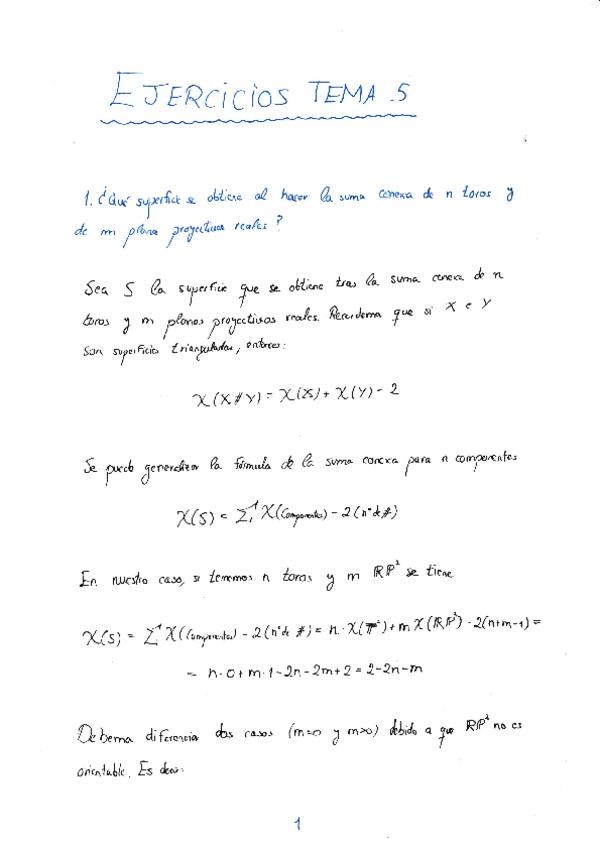 EJERCICIOS TEMA 5
1. ¿Qué superficie se obtiene al hacer la suma conexa de n toros y
de m plano proyectivos reales?
Sea S la superficie que se obtiene tras la suma conexa de n
toros y m planos proyectivos reales. Recordema que si X e Y
son superficies trianguladas, entonces:
χ(X#Y) = χ(X) + χ(Y) - 2
Se puede generalizar la fórmula de la suma conexa para n componentes
χ(S) = Σ χ(Componentes) - 2(nº de #)
En nuestro caso, si tenemos n toros y m RP² se tiene
χ(S) = Σ χ(Componentes) - 2(nº de #) = n·χ(T²) + m χ(RP²) - 2(n+m-1) =
= n·0 + m·1 - 2n - 2m + 2 = 2 - 2n - m
Debema diferencia dos casos (m=0 y m>0) debido a que RP² no es
orientable. Es decir:
1